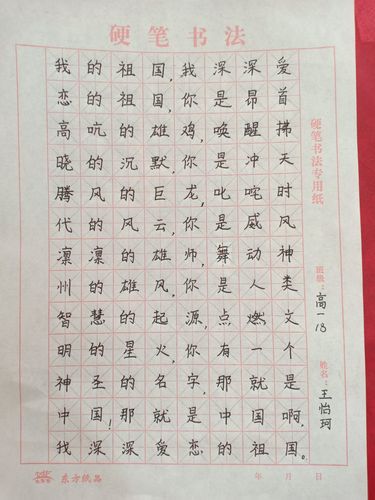 硬笔书法
我的祖国,我深深爱
恋的祖国,你是昂首
高吭的雄鸡,唤醒拂
晓的沉默,你是冲天
腾风的巨龙,叱咤时
代的风云,你是威风
凛凛的雄师,舞动神
州的雄风,你是人类
智慧的起源,点燃文
明的星火,你有一个
神圣的名字,那就是
中国!那就是中国啊,
我深深爱恋的祖国。
硬笔书法专用纸
班级:高一13
姓名:王怡珂
东方纸品
年 月 日